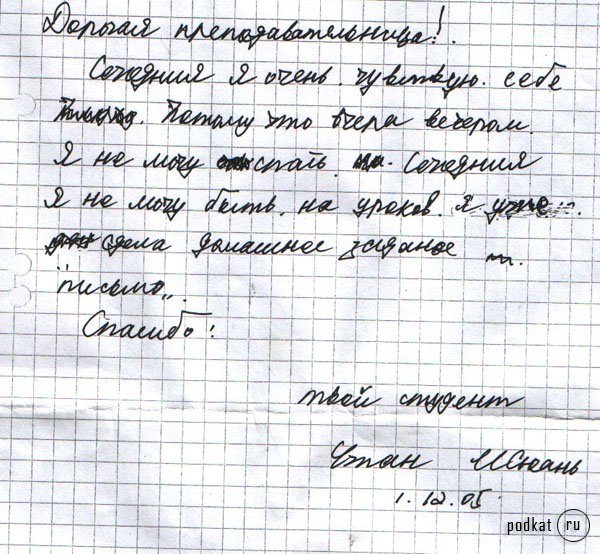 Дорогая преподавательница!.
Согодния я очень. чувствую. себе
Потому что вчера вечером.
Я не могу спать. Согодния
Я не могу быть. на уроков. я уже
дела домашнее заданое
"письмо„.
Спасибо!
твой студент
Чжан И Сюань
1.12.05
podkat ru